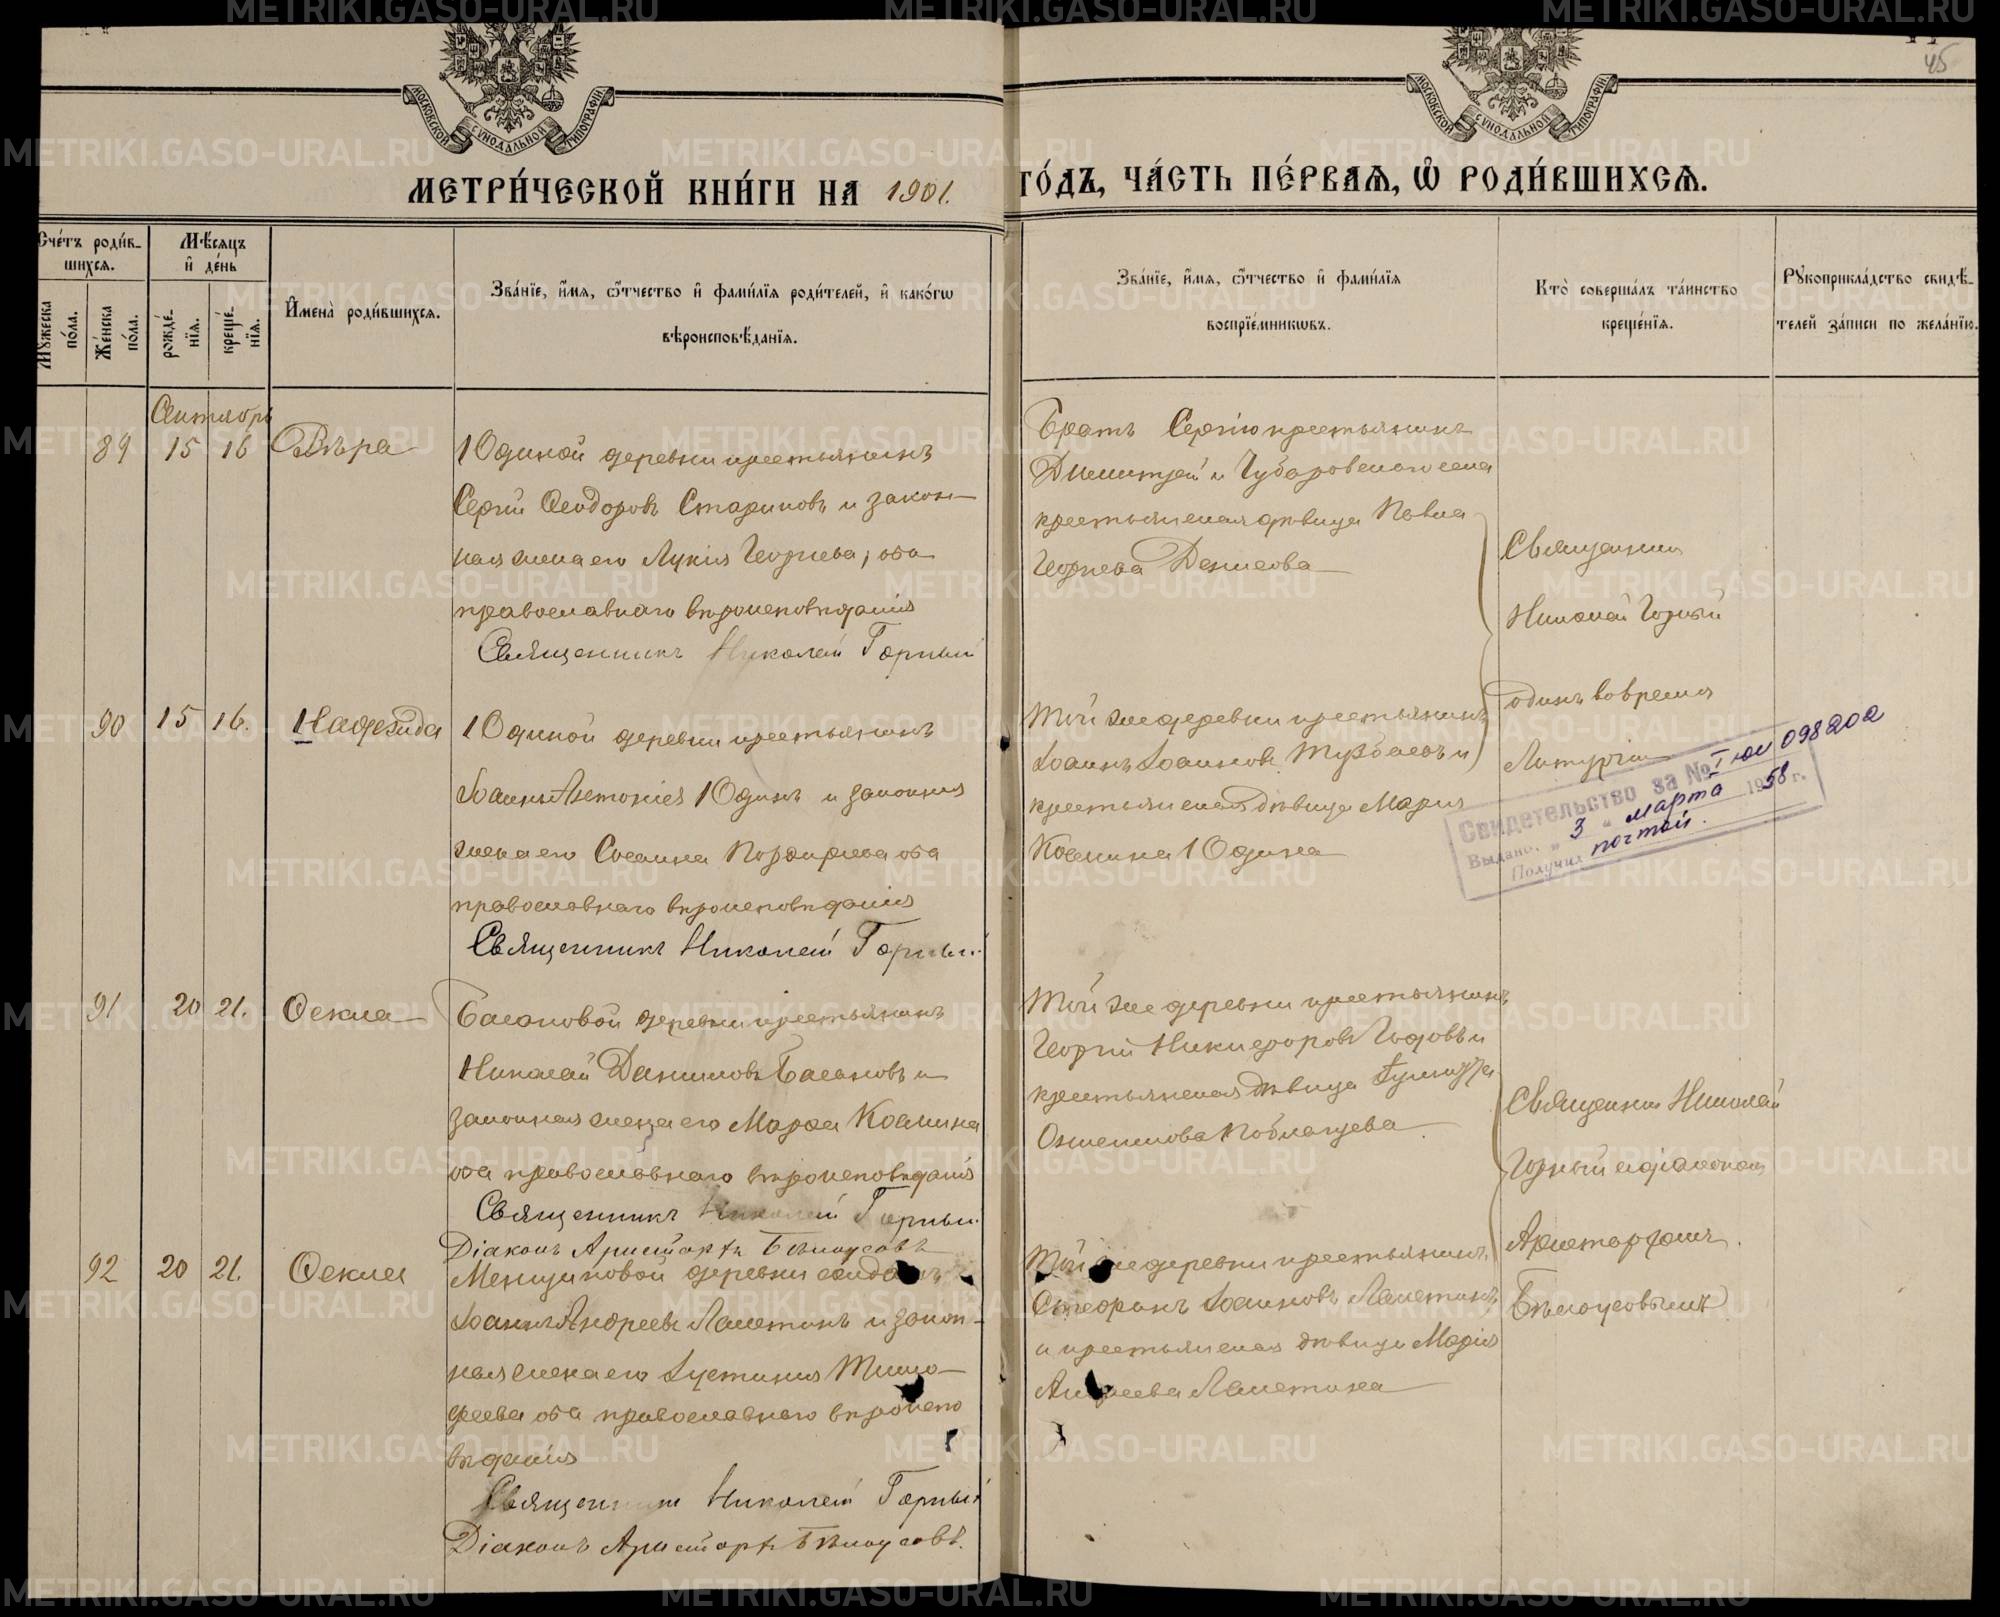 МОСКОВСКОЙ СѴНОДАЛЬНОЙ ТИПОГРАФИИ
МОСКОВСКОЙ СѴНОДАЛЬНОЙ ТИПОГРАФИИ
45
МЕТРИ́ЧЕСКОЙ КНИ́ГИ НА 1901.
ГО́ДЪ, ЧА́СТЬ ПЕ́РВАѦ, Ѡ҆ РОДИ́ВШИХСѦ.
Сче́тъ роди́в-
шихсѧ.
Мѣ́сѧцъ
и҆ де́нь
Мꙋ́жеска
по́ла.
Же́нска
по́ла.
рожде́-
нїѧ.
креще́-
нїѧ.
И҆мена̀ роди́вшихсѧ.
Зва́нїе, и҆́мѧ, ѻ҆́тчество и҆ фами́лїѧ роди́телей, и҆ како́гѡ
вѣроисповѣ́данїѧ.
Зва́нїе, и҆́мѧ, ѻ҆́тчество и҆ фами́лїѧ
воспрїе́мникѡвъ.
Кто̀ соверша́лъ та́инство
креще́нїѧ.
Рꙋкоприкла́дство свидѣ́-
телей за́писи по жела́нїю.
Сентябрь
89 15 16 Вѣра
Юдиной деревни крестьянинъ
Сергій Ѳеодоровъ Стариковъ и закон-
ная жена его Лукія Георгіева, оба
православнаго вѣроисповѣданія
Священникъ Николай Горный
Братъ Сергію крестьянинъ
Димитрій и Чубаровскаго села
крестьянская дѣвица Павла
Георгіева Денисова
Священникъ
Николай Горный
одинъ во время
Литургіи
90 15 16. Надежда
Юдиной деревни крестьянинъ
Іоаннъ Юдинъ и законная
жена его Порфирьева оба
православнаго вѣроисповѣданія
Священникъ Николай Горный
Той же деревни крестьянинъ
Іоаннъ Іоанновъ и
крестьянская дѣвица Марія
Космина Юдина
Свидетельство за № I юи 098202
Выдано „ 3 „ марта 1958 г.
Получил почтой.
91 20 21. Ѳекла
Басановой деревни крестьянинъ
Николай Даниловъ Басановъ и
законная жена его Марѳа Космина
оба православнаго вѣроисповѣданія
Священникъ Николай Горный
Діаконъ Аристархъ Бѣлоусовъ
Той же деревни крестьянинъ
Георгій Никифоровъ и
крестьянская дѣвица
Священникъ Николай
Горный съ діакономъ
Аристархомъ
Бѣлоусовымъ
92 20 21. Ѳекла
Менщиковой деревни солдатъ
Іоаннъ Андреевъ Ласткинъ и закон-
ная жена его Іустинія Тимо-
феева оба православнаго вѣроиспо
вѣданія
Священникъ Николай Горный
Діаконъ Аристархъ Бѣлоусовъ.
Той же деревни крестьянинъ
Іоанновъ
и крестьянская дѣвица Марія
Андреева
METRIKI.GASO-URAL.RU